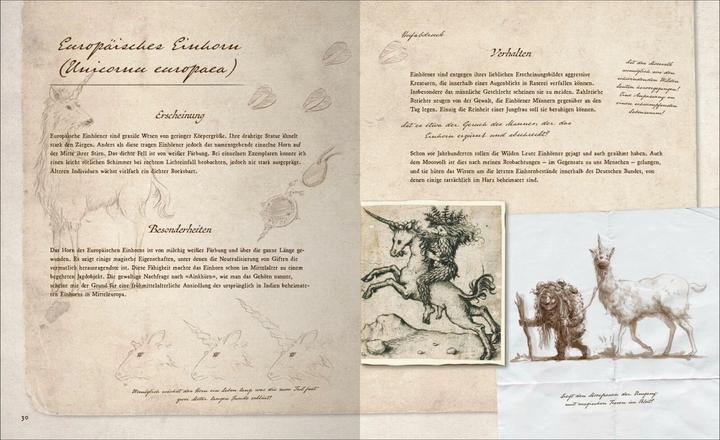 Europäisches Einhorn
(Unicornu europaea)
Erscheinung
Europäische Einhörner sind grazile Wesen von geringer Körpergröße. Ihre drahtige Statur ähnelt
stark den Ziegen. Anders als diese tragen Einhörner jedoch das namensgebende einzelne Horn auf
der Mitte ihrer Stirn. Das dichte Fell ist von weißer Färbung. Bei einzelnen Exemplaren konnte ich
einen leicht rötlichen Schimmer bei rechtem Lichteinfall beobachten, jedoch nie stark ausgeprägt.
Älteren Individuen wächst vielfach ein dichter Bocksbart.
Besonderheiten
Das Horn des Europäischen Einhorns ist von milchig weißer Färbung und über die ganze Länge ge-
wunden. Es zeigt einige magische Eigenschaften, unter denen die Neutralisierung von Giften die
vermutlich herausragendste ist. Diese Fähigkeit machte das Einhorn schon im Mittelalter zu einem
begehrten Jagdobjekt. Die gewaltige Nachfrage nach «Ainkhürn», wie man das Gehörn nannte,
scheint mir der Grund für eine frühmittelalterliche Ansiedlung des ursprünglich in Indien beheimate-
ten Einhorns in Mitteleuropa.
Womöglich wächst das Horn ein Leben lang, was die zum Teil fast
zwei Meter langen Funde erklärt!
30
Hufabdruck
Verhalten
Einhörner sind entgegen ihres lieblichen Erscheinungsbildes aggressive
Kreaturen, die innerhalb eines Augenblicks in Raserei verfallen können.
Insbesondere das männliche Geschlecht scheinen sie zu meiden. Zahlreiche
Berichte zeugen von der Gewalt, die Einhörner Männern gegenüber an den
Tag legen. Einzig die Reinheit einer Jungfrau soll sie beruhigen können.
Ist es etwa der Geruch des Mannes, der das
Einhorn erzürnt und abschreckt?
Schon vor Jahrhunderten sollen die Wilden Leute Einhörner gejagt und auch gezähmt haben. Auch
dem Moosvolk ist dies nach meinen Beobachtungen – im Gegensatz zu uns Menschen – gelungen,
und sie hüten das Wissen um die letzten Einhornbestände innerhalb des Deutschen Bundes, von
denen einige tatsächlich im Harz beheimatet sind.
Ist das Moosvolk
womöglich aus den
Wilden
Leuten hervorgegangen?
Eine Anpassung an
einen
Lebensraum!
Liegt den Moosfrauen der Umgang
mit magischen Tieren im Blut?